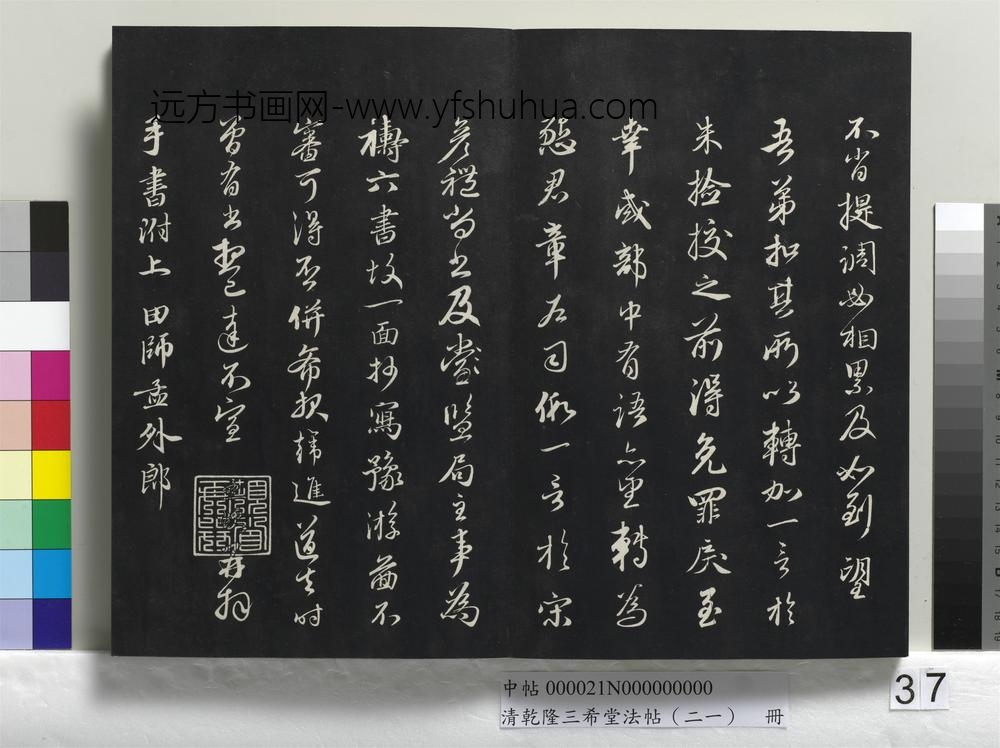 不肖提調必相累及如到望
吾弟扣其所以轉加一言於
朱撿挍之前得免罪戾至
幸或部中有語亦望轉為
愁君章右司假一言於宋
彦禮尚書及當監局主事為
禱六書故一面抄寫豫游啚不
審可得否併希報韓進道去時
曾有書想已達不宣
再拜
手書附上田師孟外郎
远方书画网-www.yfshuhua.com
中帖 000021N000000000
清乾隆三希堂法帖（二一） 冊
37